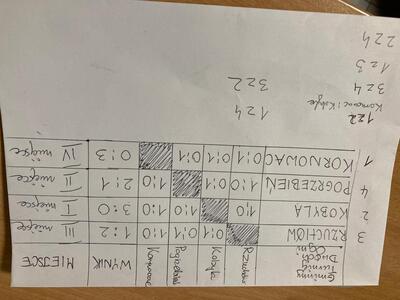 Gminny
Drugi
turniej
Rzuchów
Kobyla
Pogrzebień
Kornowac
WYNIK
MIEJSCE
3 RZUCHÓW 0:1 0:1 1:0 1:2 III miejsce
2 KOBYLA 1:0 1:0 1:0 3:0 I miejsce
4 POGRZEBIEŃ 1:0 0:1 1:0 2:1 II miejsce
1 KORNOWAC 0:1 0:1 0:1 0:3 IV miejsce
1 z 2
Kornowac i Kobyla
3 z 4
1 z 3
2 z 4
1 z 4
3 z 2